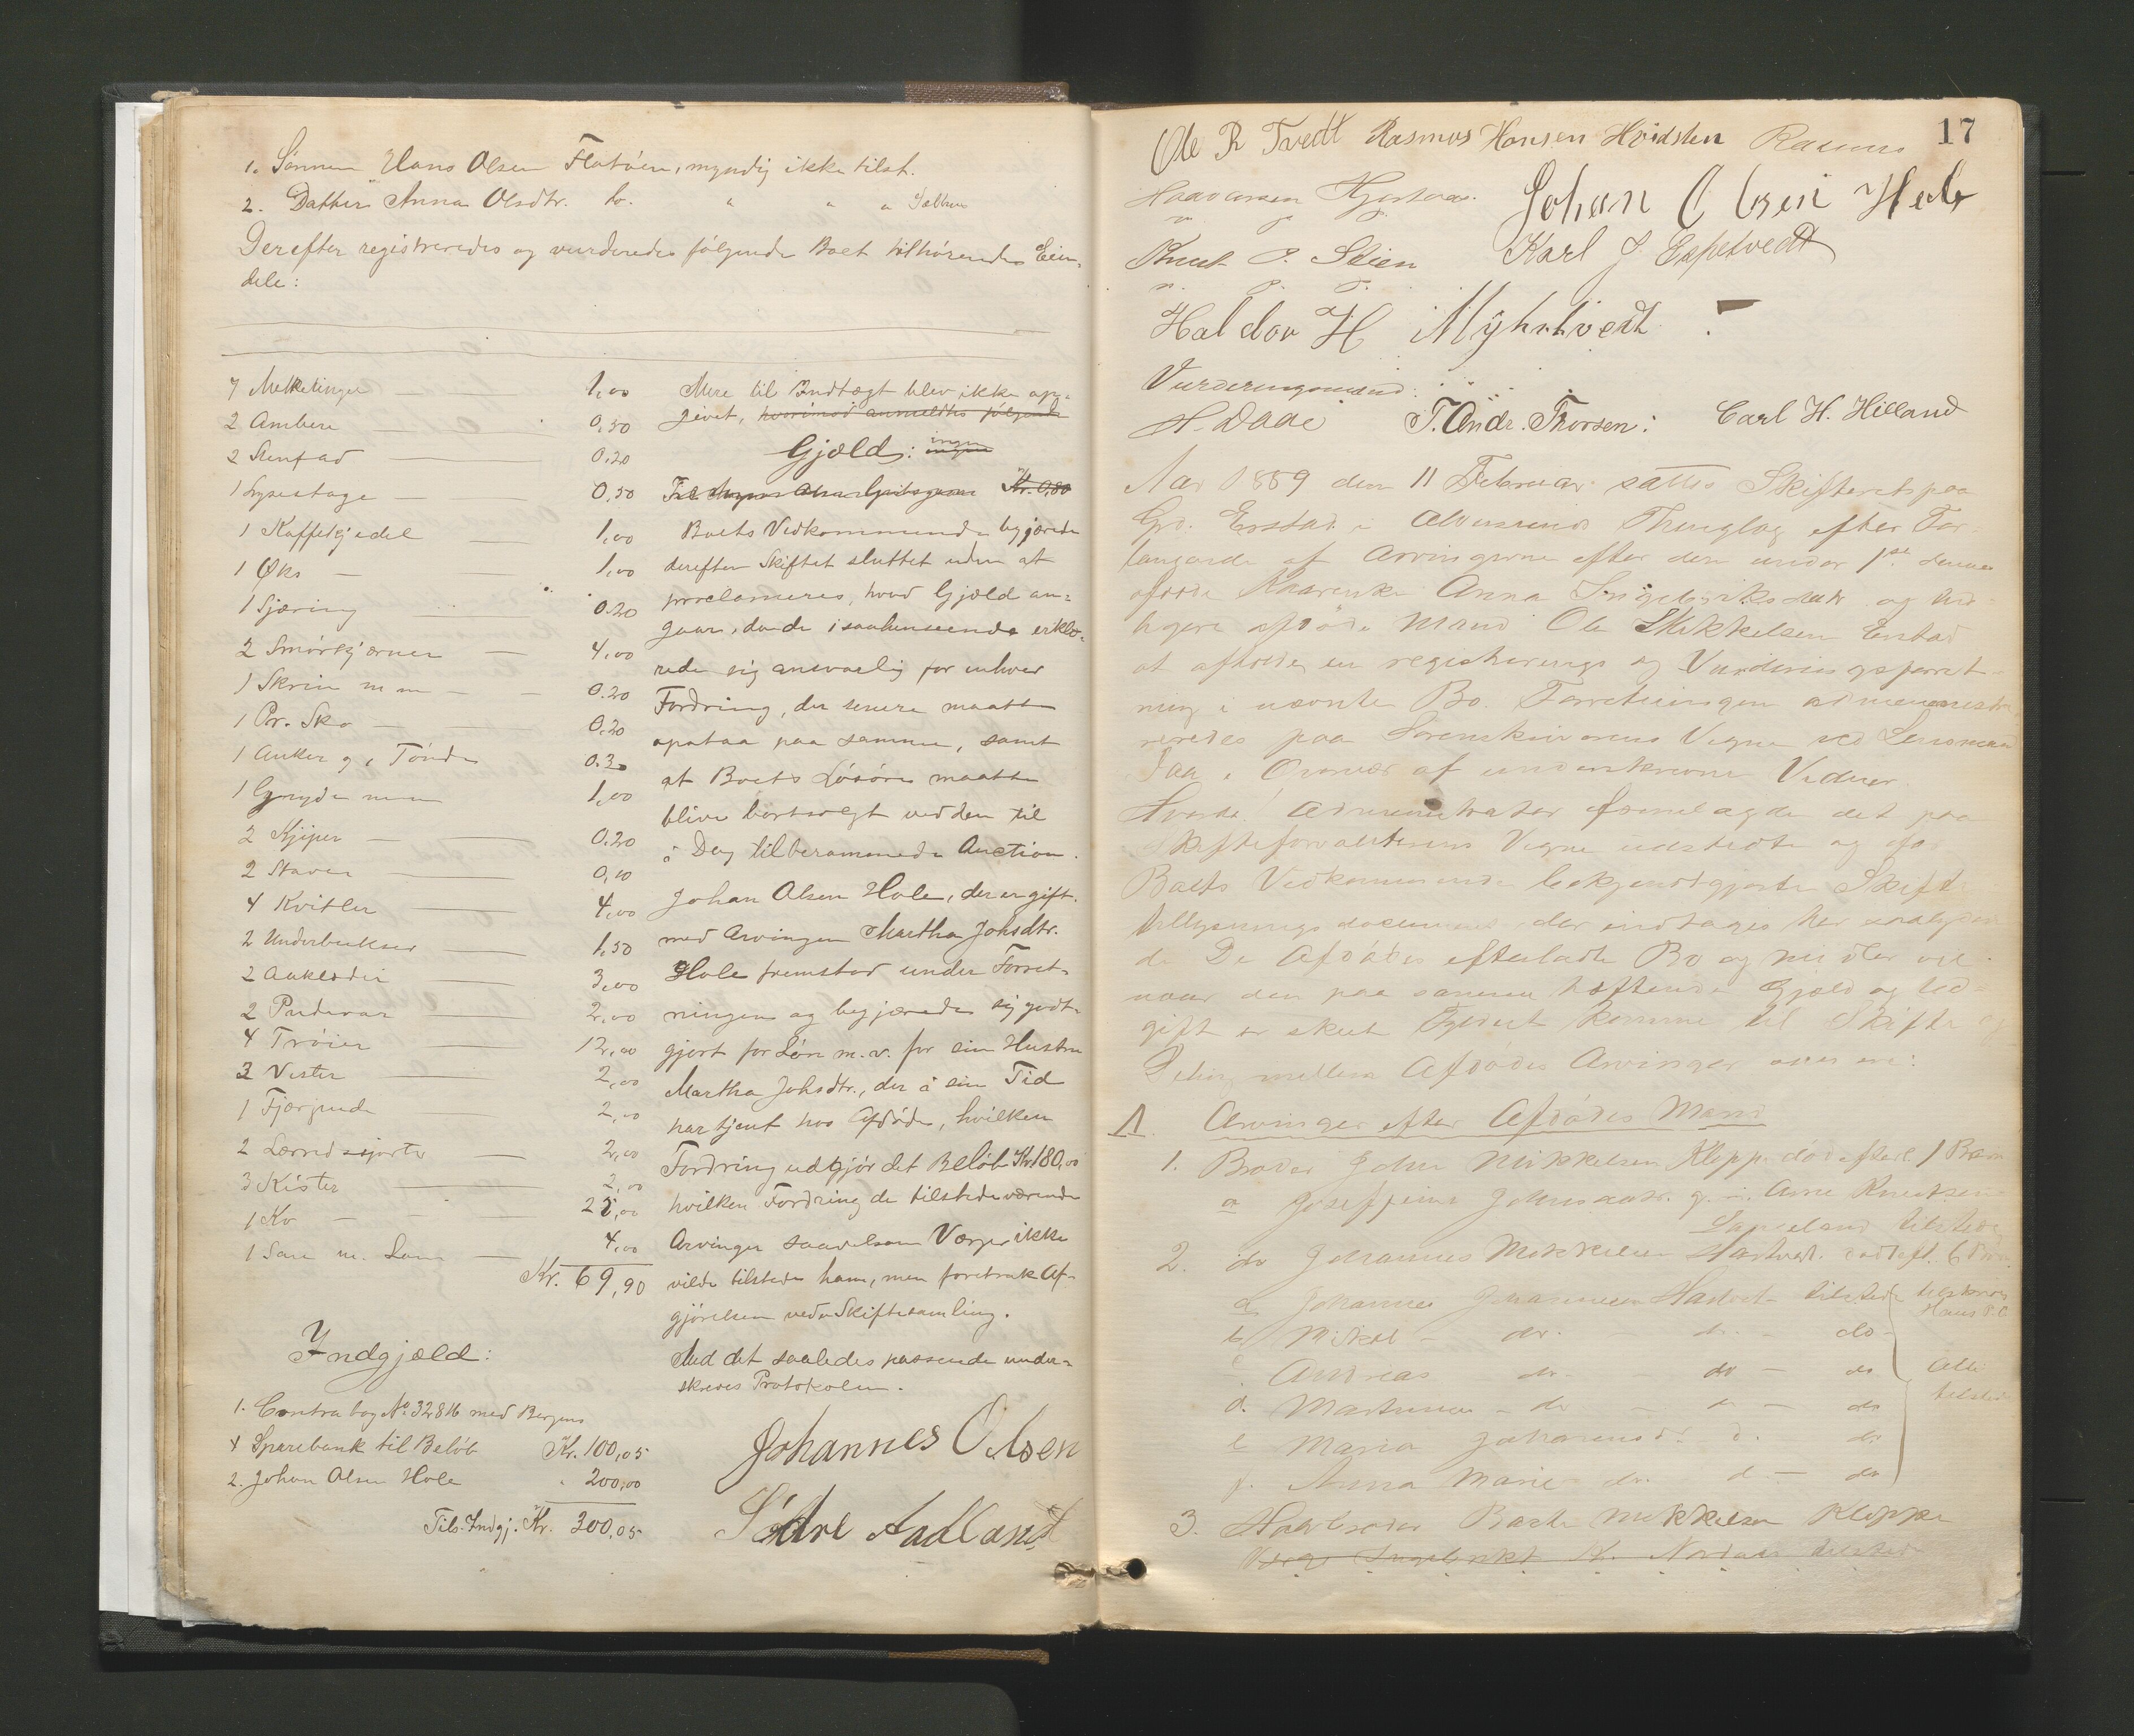 1. Sønnen Hans Olsen Flatøen, myndig ikke tilst.
2. Datter Anna Olsdtr. do. " " "
Derefter registreredes og vurderedes følgende Boet tilhørende Eien-
dele:
7 Melkeringer 1,00
2 Ambere 0,50
2 Stenfad 0.20
1 Lysestage 0,50
1 Kaffekjedel 1,00
1 Øks 1,00
1 Sjæring 0.20
2 Smørkjerner 4,00
1 Skrin m m 0.20
1 Par Sko 0.20
1 Anker og 1 Tønde 0.30
1 Gryde m m 1,00
2 Kjiper 0.20
2 Staver 0,10
4 Kvitler 4,00
2 Underbukser 1,50
2 Aaklæder 3,00
2 Pudevar 2,00
4 Trøier 12,00
3 Vester 2,00
1 Fjærpude 2,00
2 Lærredsskjorter 2,00
3 Kister 2,00
1 Ko 25,00
1 Sau m. Lam 4,00
Kr. 69,90
Indgjæld:
1. Contrabog No. 32816 med Bergens
Sparebank til Beløb Kr. 100,05
2. Johan Olsen Hole " 200,00
Tils. Indgj. Kr. 300,05
Mere til Indtægt blev ikke op-
givet, hvorimod anmeldtes følgende
Gjæld: ingen
Kr. 0,80
Boets Vedkommende begjærede
derefter Skiftet sluttet uden at
proclameres, hvad Gjæld an-
gaar, da de i saahenseende erklæ-
rede sig ansvarlig for enhver
Fordring, der senere maatte
opstaa paa samme, samt
at Boets Løsøre maatte
blive bortsolgt ved den til
i Dag tilberammede Auction.
Johan Olsen Hole, der er gift
med Arvingen Martha Johsdtr.
Hole fremstod under Forret-
ningen og begjærede sig godt-
gjort for Løn m.v. for sin Hustru
Martha Johsdtr., der i sin Tid
har tjent hos Afdøde, hvilken
Fordring udgjør det Beløb Kr. 180,00
hvilken Fordring de tilstedeværende
Arvinger saavelsom Værger ikke
vilde tilstede ham, men foretrak Af-
gjørelsen ved Skiftesamling.
Med det saaledes passerede under-
skreves Protokolen.
Johannes Olsen
Sørre Aadland
17
Ole R Tvedt Rasmus Hansen Hvidsten Rasmus
Haavorsen Johan Olsen Hole
m p P.
Knut P. Stien Karl J Espetvedt
m. P. P.
Haldor H Myhrtvedt
Vurderingsmænd:
H. Daae T. Andr. Thorsen: Carl H. Hilland
Aar 1889 den 11 Februar sattes Skifteret paa
Grd. Erstad i Alversunds Thinglag efter For-
langende af Arvingerne efter den under 1ste dennes
afdøde Kaarenke Anna Ingebriktsdatr og tid-
ligere afdøde Mand Ole Mikkelsen Erstad
at afholde en registrerings og Vurderingsforret-
ning i nævnte Bo. Forretningen administre-
reredes paa Sorenskriverens Vegne ved Lensmand
Daae i Overvær af underskrevne Vidner.
Hvorda! Administrator fremlagde det paa
Skifteforvalterens Vegne udstedte og for
Boets Vedkommende bekjendtgjorte Skifte
tillysnings document der indtages her saalyden-
de De Afdødes efterladte Bo og midler vil
naar den paa samme heftende Gjæld og Ud-
gift er skeet Fyldest komme til Skifte og
Deling mellem Afdødes Arvinger som ere:
A. Arvinger efter Afdødes Mand
1. Broder John Mikkelsen Kleppe død efterl. 1 Barn
a Joseffine Johnsdatr. g. m. Arne Knutsen
tilstede
2. do Johannes Mikkelsen Hartvedt død eft. 6 Børn.
a Johannes Johannesen Hartvedt tilstede
b Mikal - do. - do. - do
c. Andreas do. - do - do
d. Martinus - do - d - do
e Maria Johannesdr. d. - do
f. Anna Marie - do. d. - do
Alle
tilstede
3. Halvbroder Baste Mikkelsen Kleppe
Værge Ingebrikt H. Nordaas tilstede